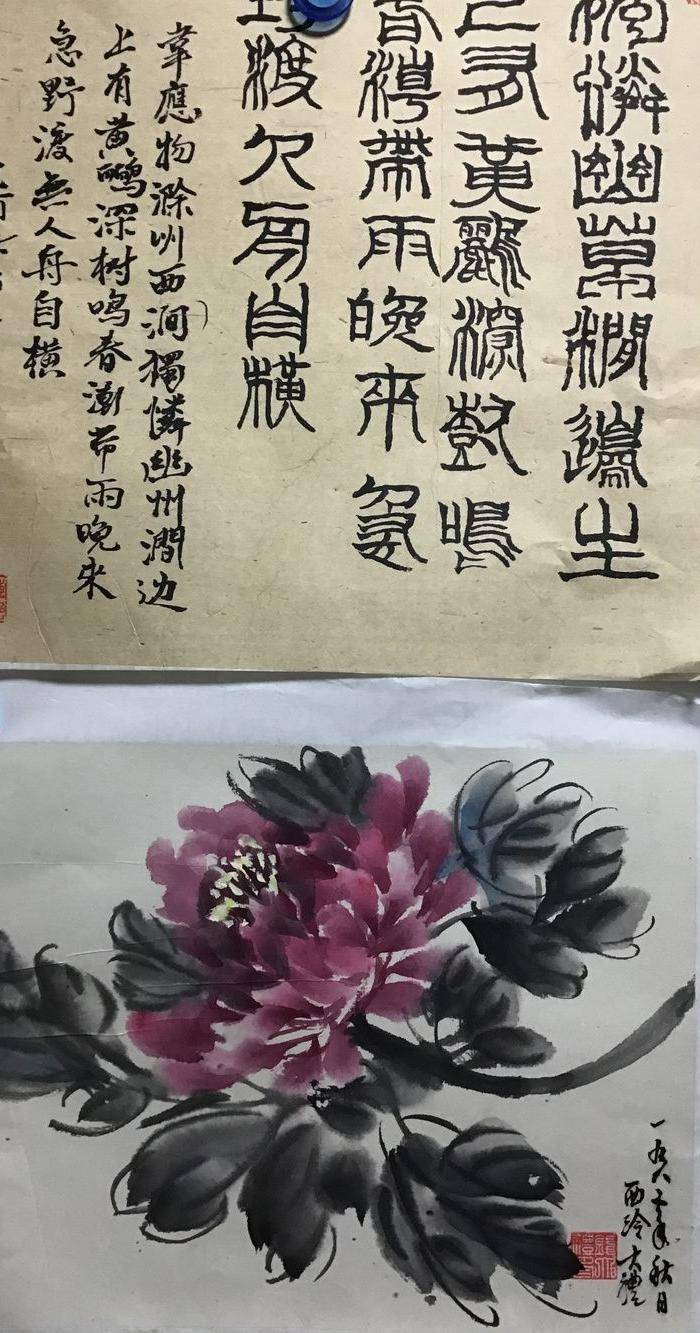 獨憐幽草澗邊生
上有黃鸝深樹鳴
春潮帶雨晚來急
渡舟自橫
韋應物滁州西澗獨憐幽州澗边
上有黄鸝深树鳴春潮带雨晚来
急野渡無人舟自横
一九八年秋日
西泠大禮